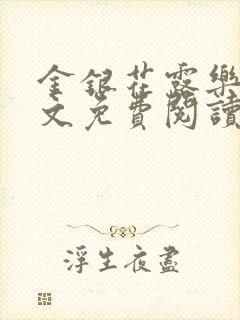 金銀花露樂
文免費閱讀
浮生夜盡